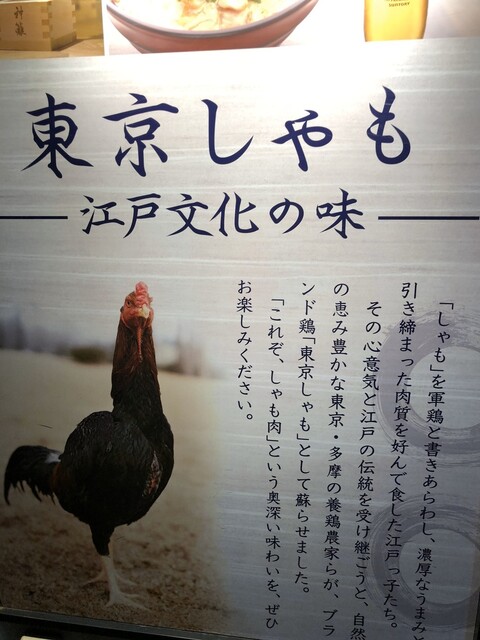 SUNTORY
東京しゃも
江戸文化の味
「しゃも」を軍鶏と書きあらわし、濃厚なうまみ、
引き締まった肉質を好んで食した江戸っ子たち。
その心意気と江戸の伝統を受け継ごうと、自然
の恵み豊かな東京・多摩の養鶏農家らが、ブラ
ンド鶏「東京しゃも」として蘇らせました。
「これぞ、しゃも肉」という奥深い味わいを、ぜひ
お楽しみください。